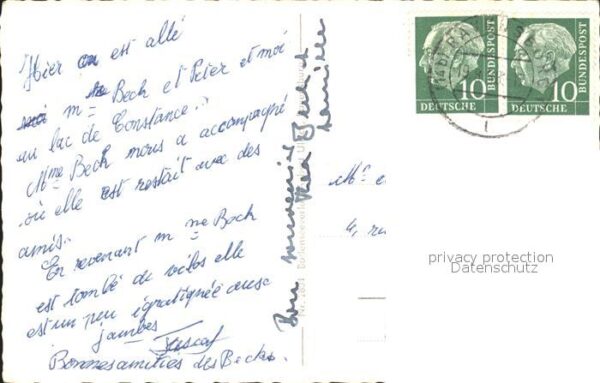 Hier on est allé
m me Beck et Peter et moi
au lac de Constance.
Mme Beck nous a accompagné
où elle est restait avec des
amis.
En revenant m me Beck
est tombé du vélos elle
est un peu égratignée
jambes
Pascal
Bonnes amitiés des Becks.
Bon souvenir
Beck
famille
Mr e
4, ru
10 10
DEUTSCHE BUNDESPOST
DEUTSCHE BUNDESPOST
privacy protection
Datenschutz